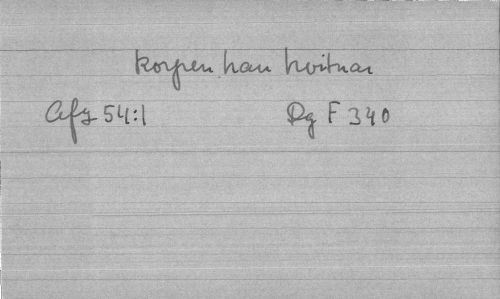 korpen han hvitnar
Afz 54:1 Rg F 340